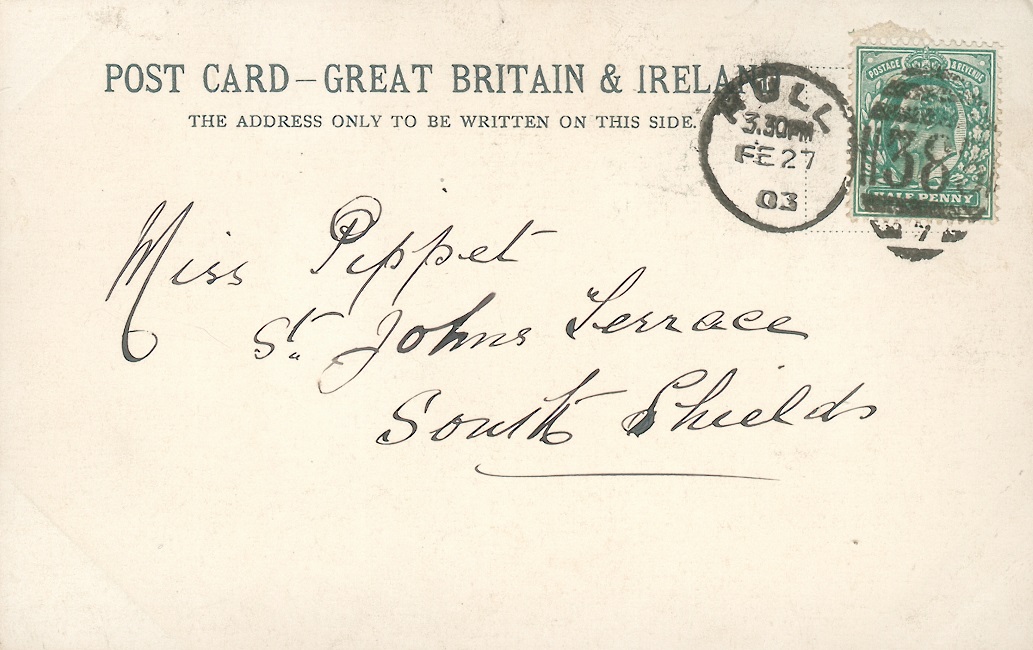 POST CARD – GREAT BRITAIN & IRELAND
THE ADDRESS ONLY TO BE WRITTEN ON THIS SIDE.
HULL
3.30PM
FE 27
03
POSTAGE & REVENUE
383
HALF PENNY
7
Miss Pippet
St. Johns Terrace
South Shields